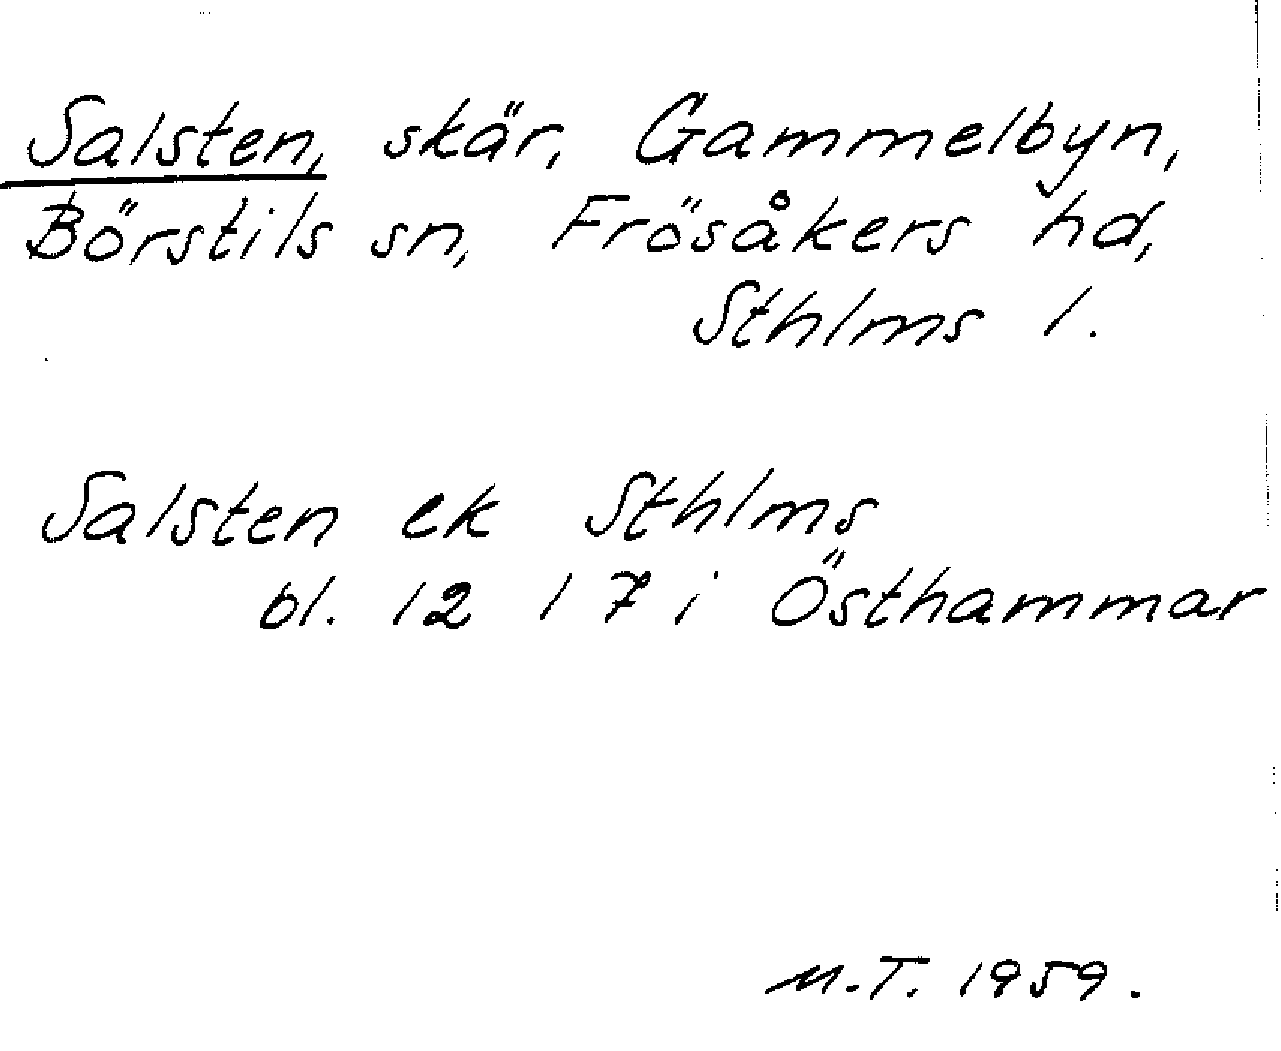 Salsten, skär, Gammelbyn,
Börstils sn, Frösåkers hd,
Sthlms l.
Salsten ek Sthlms
bl. 12 I 7 i Östhammar
M.T. 1959.